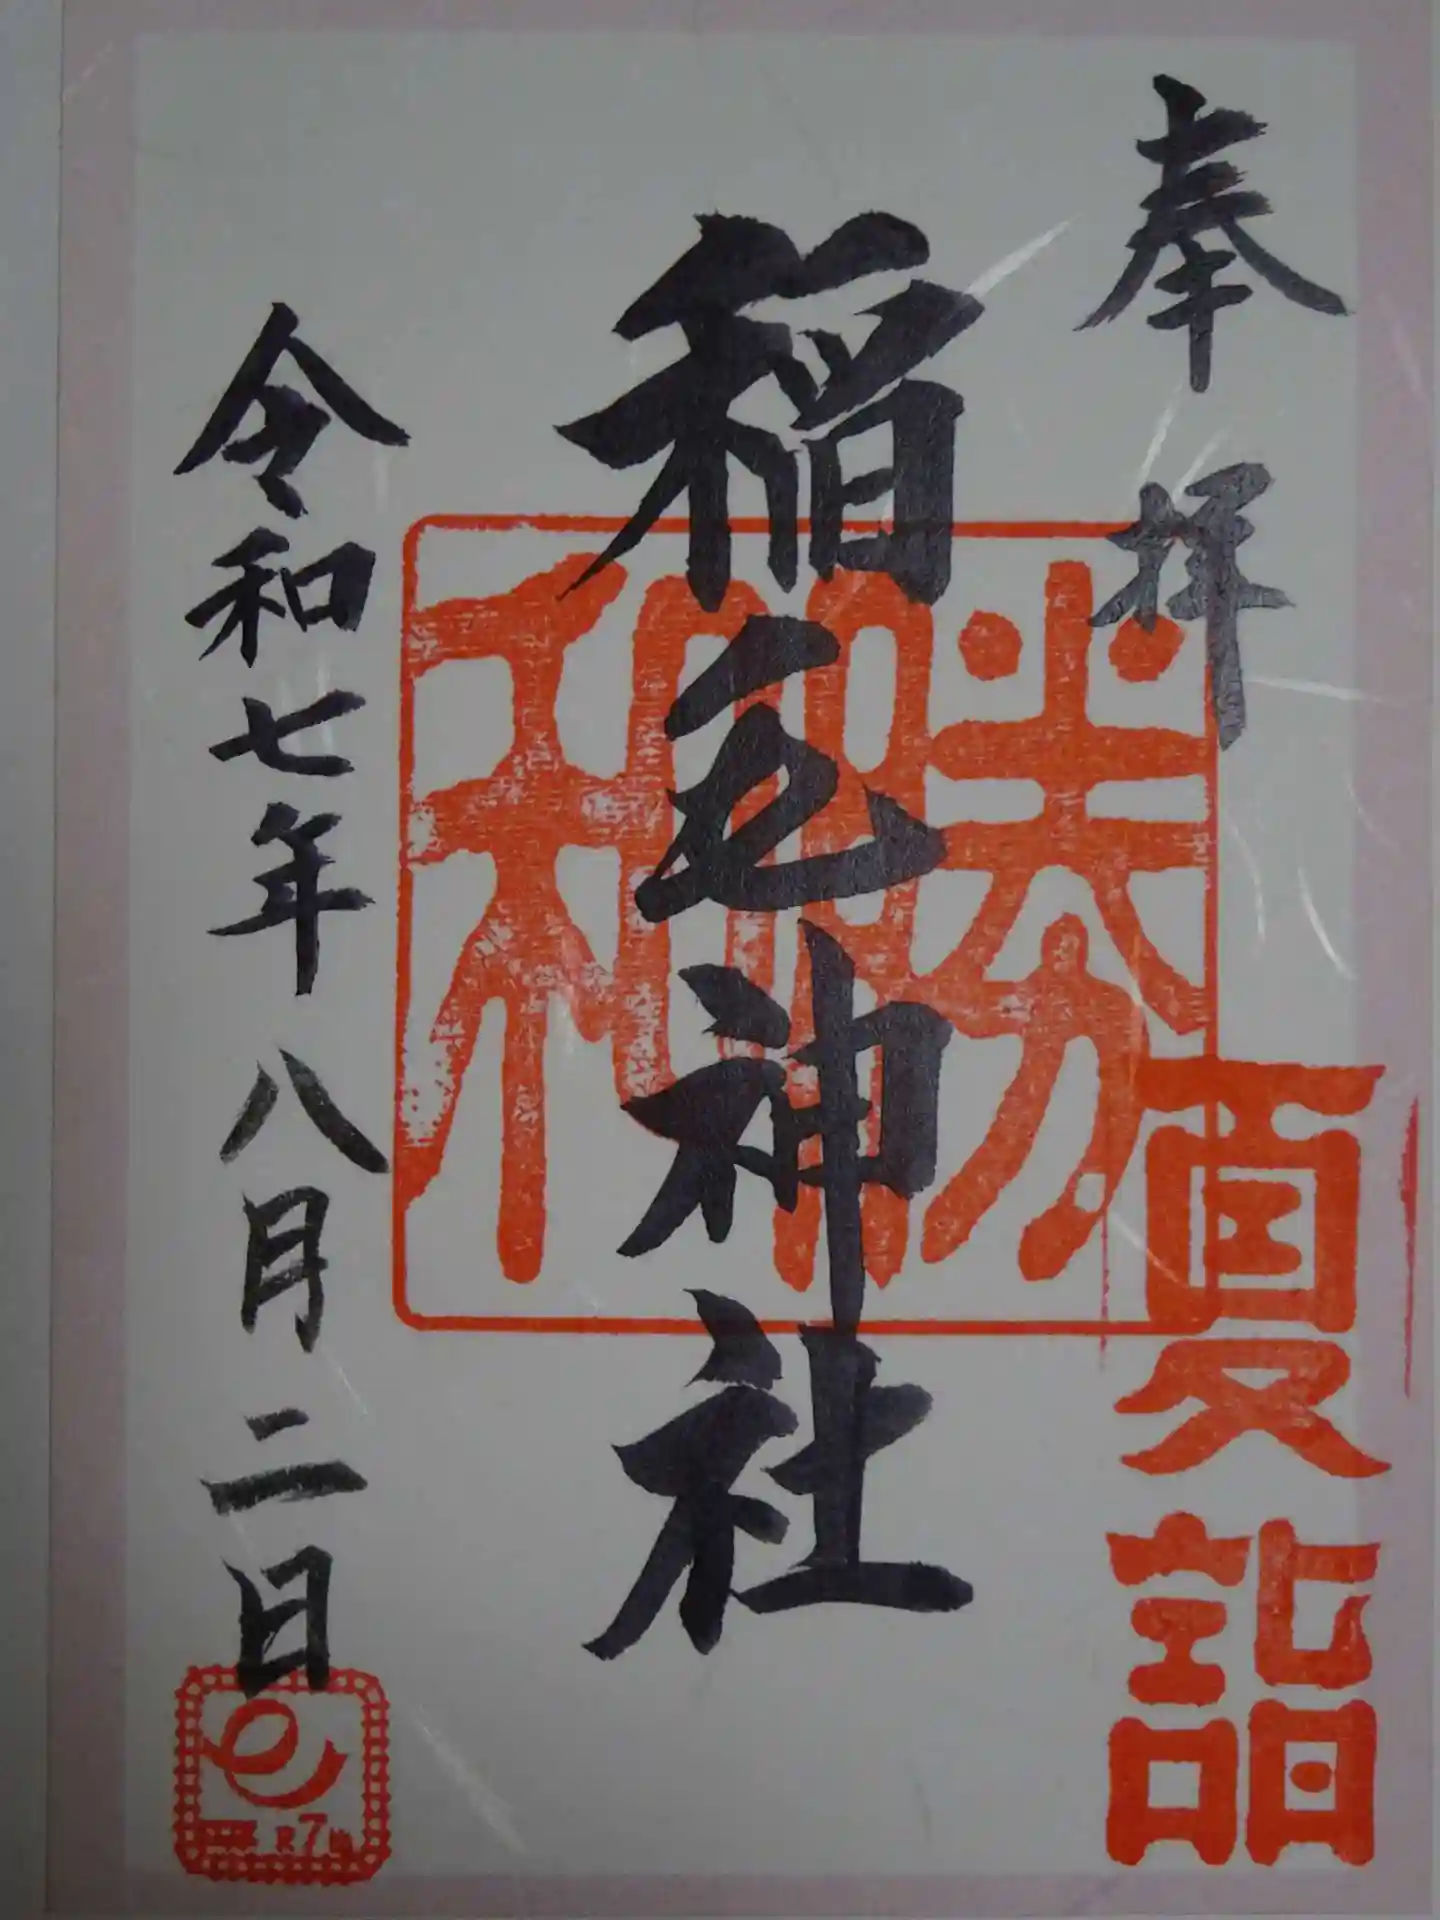 奉拝
夏詣
稲毛神社
勝和
令和七年八月二日
R7